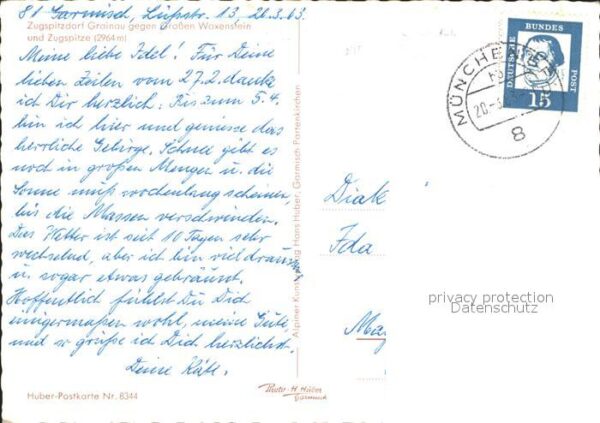 81 Garmisch, Lüftstr. 13. 20.3.63.
Zugspitzdorf Grainau gegen Großen Waxenstein
und Zugspitze (2964 m)
Meine liebe Idel! Für Deine
lieben Zeilen vom 27.2. danke
ich Dir herzlich. Bis zum 5.4.
bin ich hier und geniesse das
herrliche Gebirge. Schnee gibt es
noch in großen Mengen u. die
Sonne muß wochenlang scheinen,
bis die Massen verschwinden.
Das Wetter ist seit 10 Tagen sehr
wechselnd, aber ich bin viel draußen
u. sogar etwas gebräunt.
Hoffentlich fühlst Du Dich
einigermaßen wohl, meine Gute,
und so grüße ich Dich herzlichst.
Deine Käte.
Huber-Postkarte Nr. 8344
Photo H. Huber
Garmisch
Alpiner Kunstverlag Hans Huber, Garmisch-Partenkirchen
DEUTSCHE BUNDESPOST
15
MÜNCHEN
20.-3.
8
Diak
Ida
privacy protection
Datenschutz